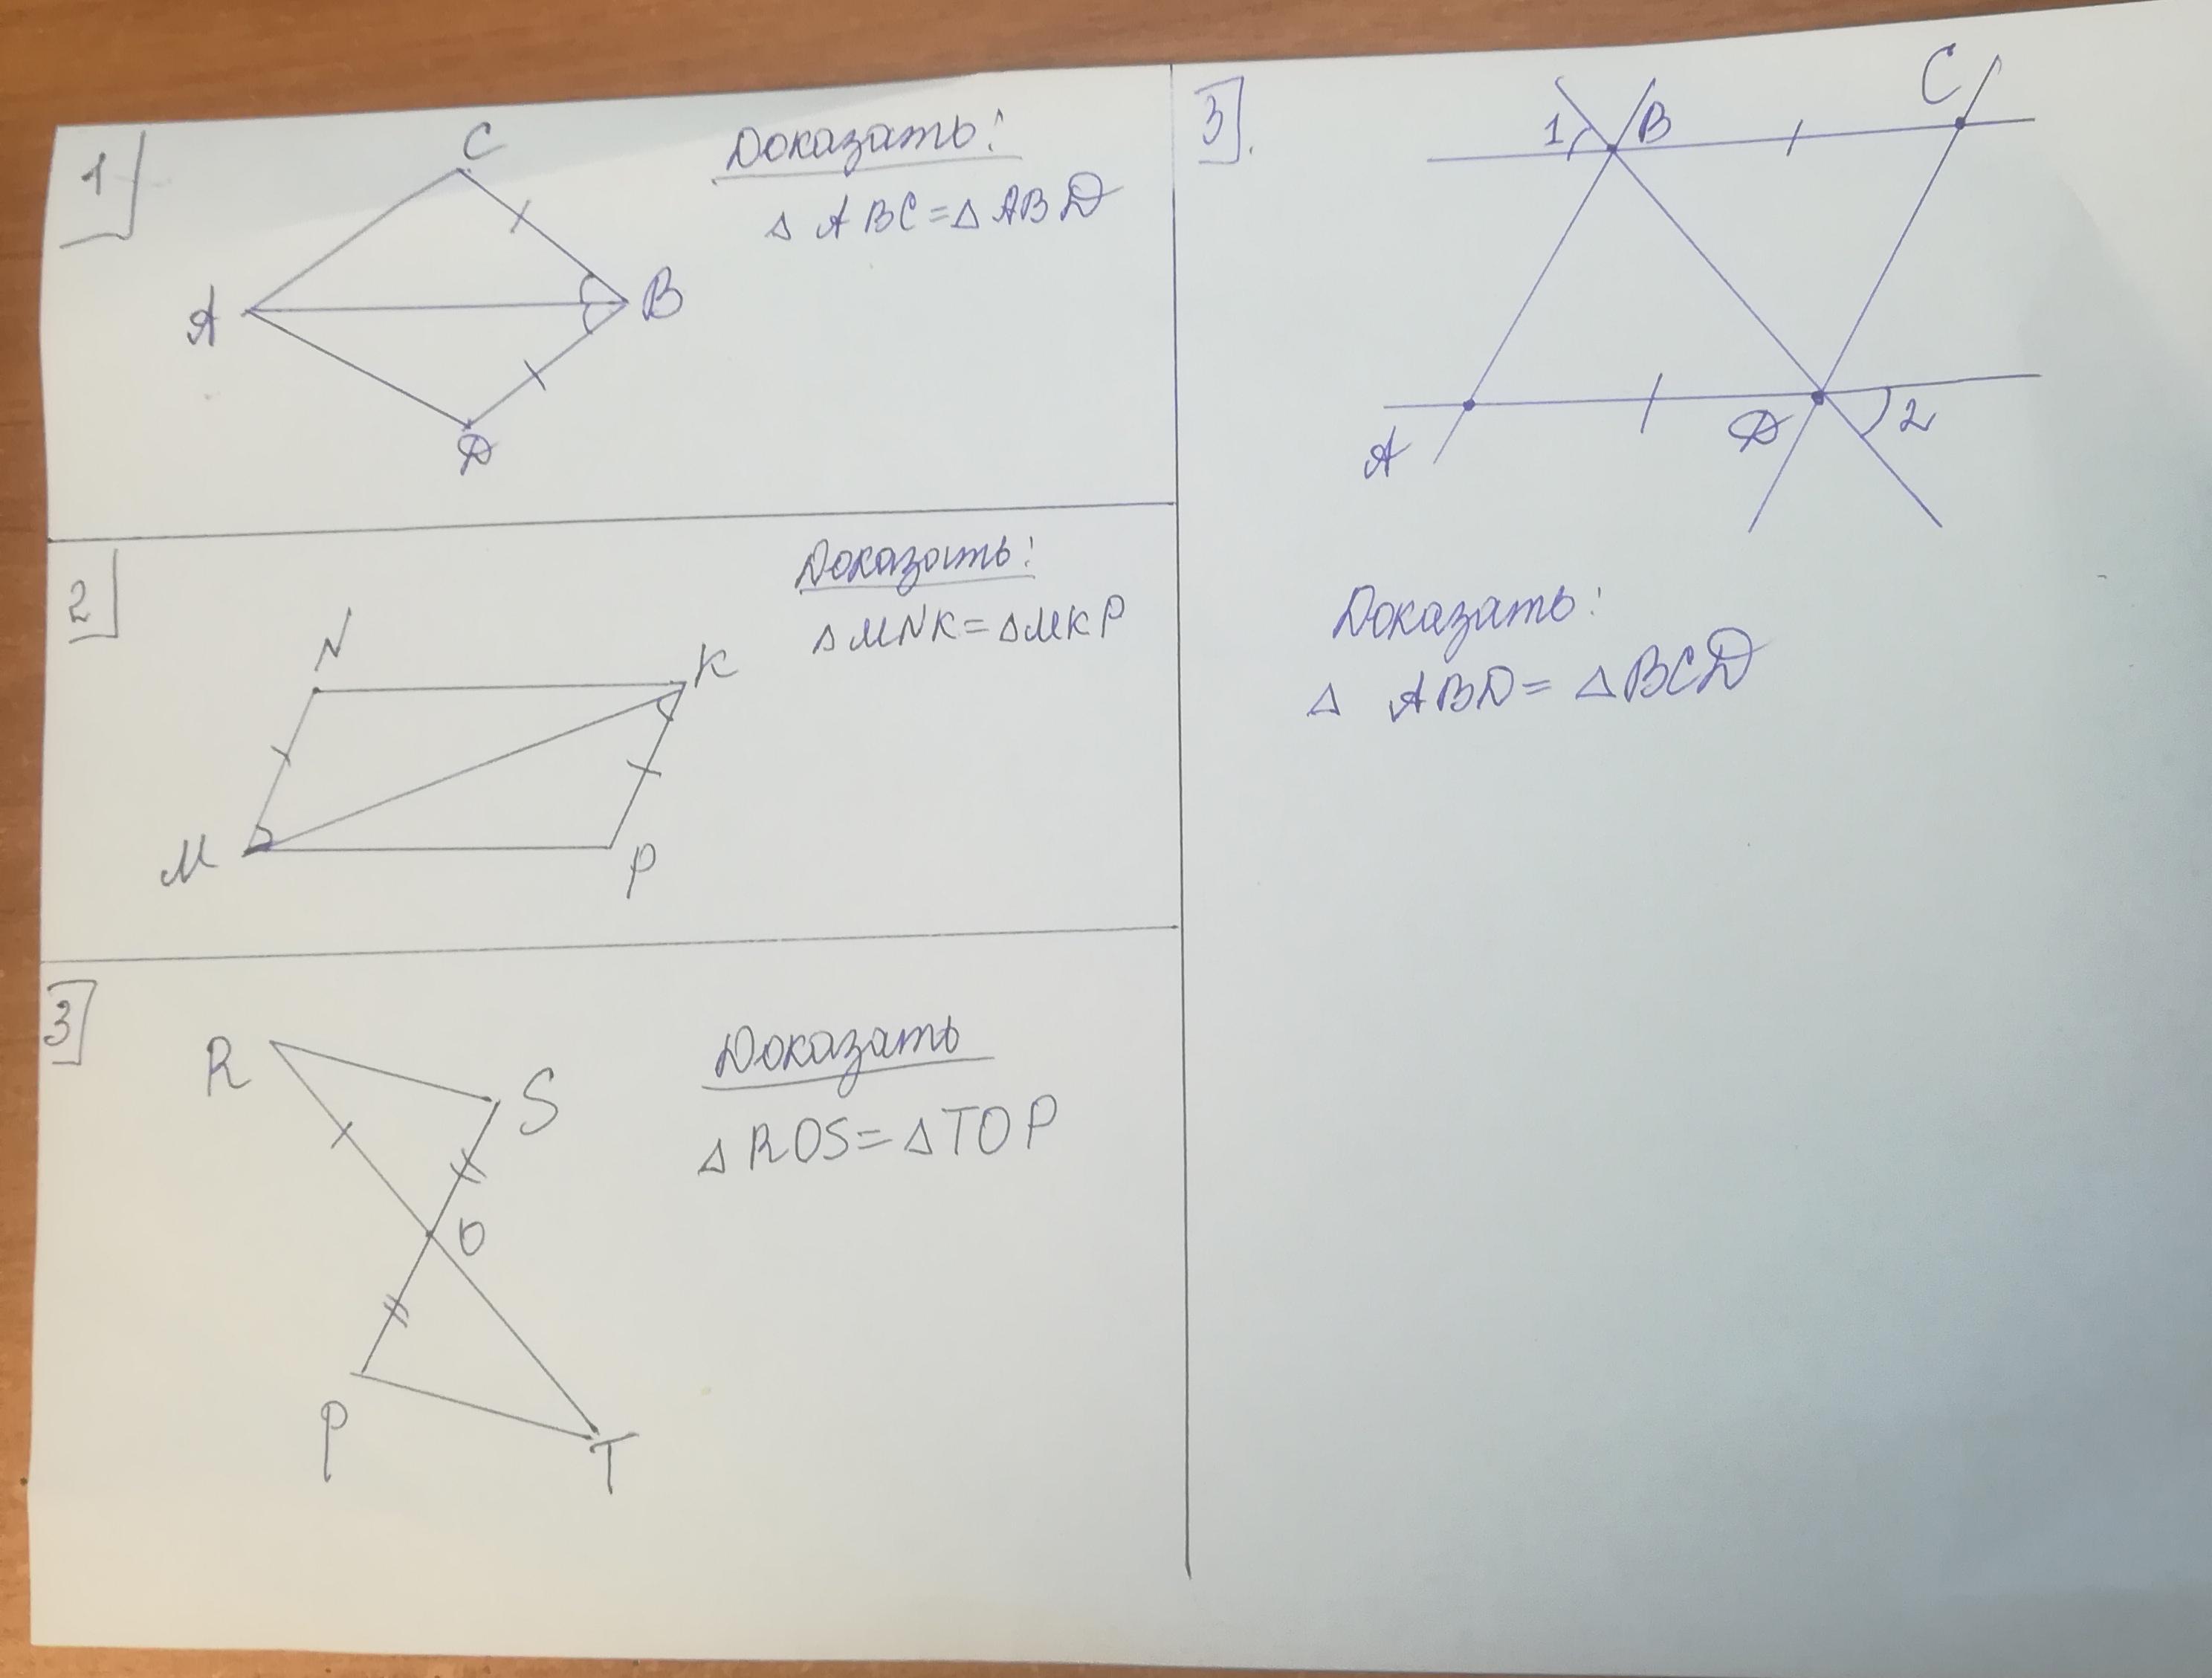 1
C
A
B
D
Доказать:
△ ABC = △ ABD
2
N
K
M
P
Доказать:
△ MNK = △ MKP
3
R
S
O
P
T
Доказать
△ ROS = △ TOP
3.
1
B
C
A
D
2
Доказать:
△ ABD = △ BCD